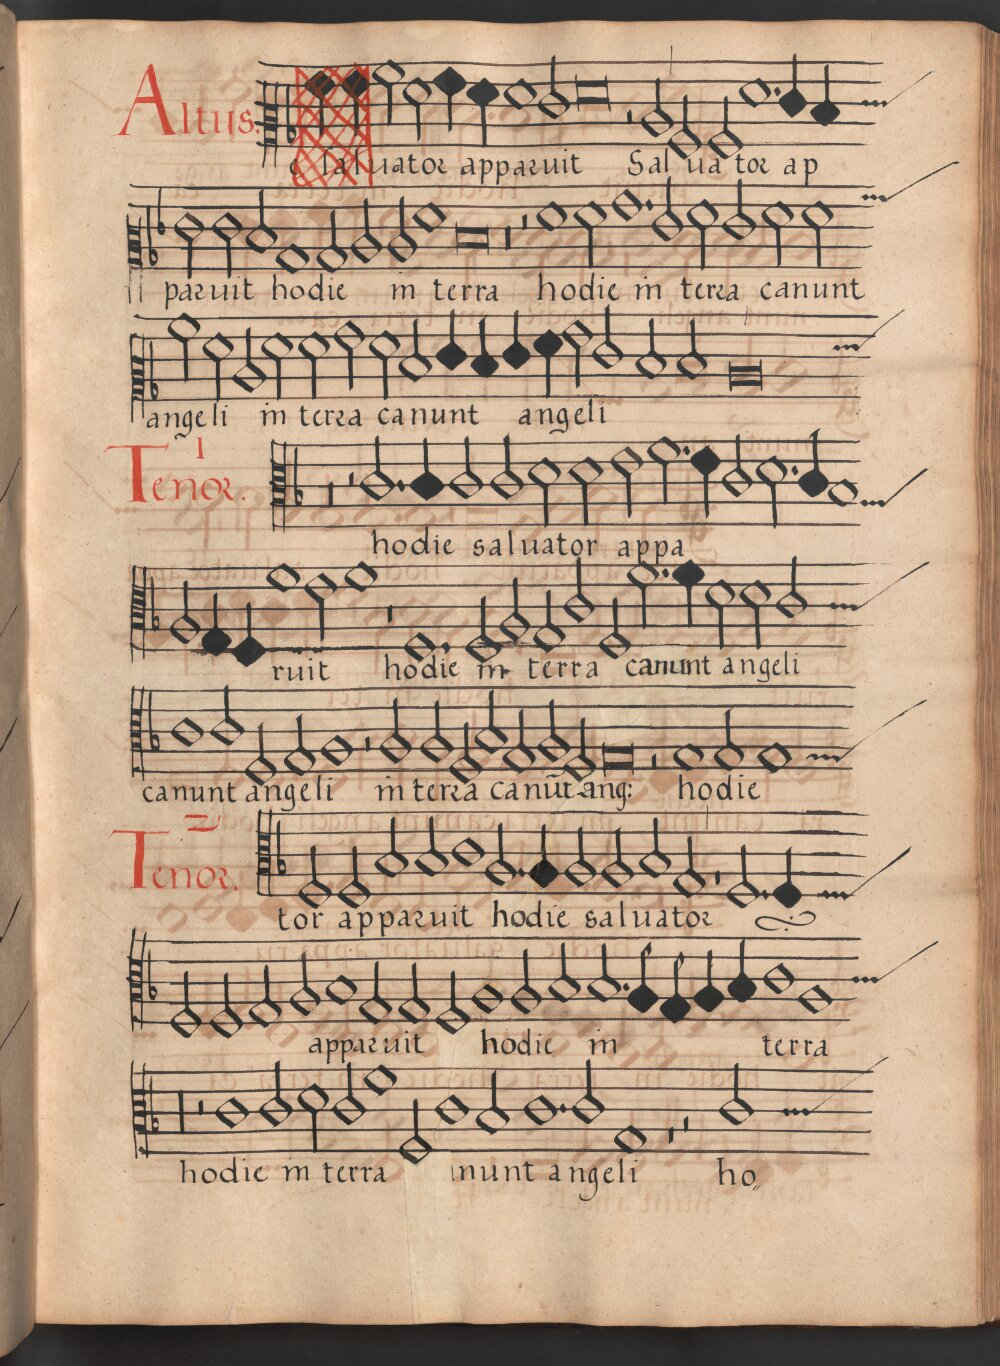 Altus.
e saluator apparuit Saluator ap
paruit hodie in terra hodie in terra canunt
angeli in terra canunt angeli
1
Tenor.
hodie saluator appa
ruit hodie in terra canunt angeli
canunt angeli in terra canūt ang: hodie
2
Tenor.
tor apparuit hodie saluator
apparuit hodie in terra
hodie in terra nunt angeli ho